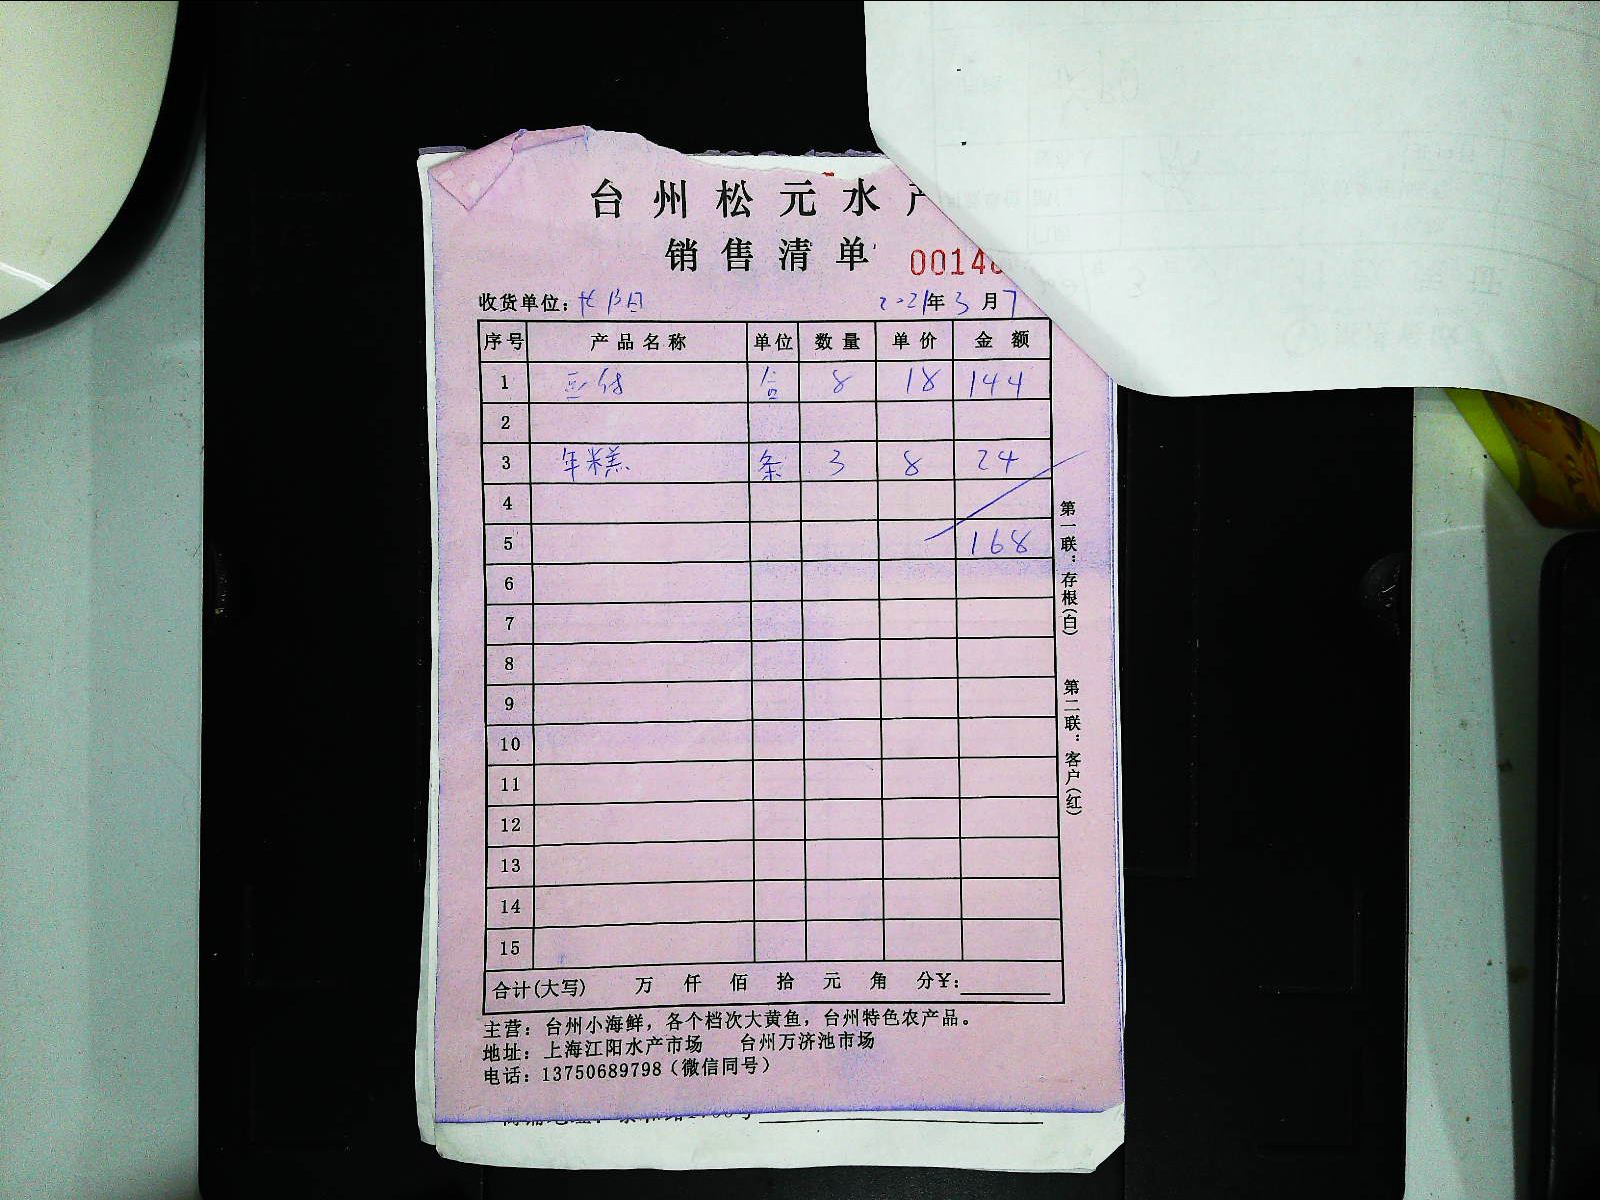 台州松元水产
销售清单 00140
收货单位： 2021年3月7
序号 产品名称 单位 数量 单价 金额
1 豆付 合 8 18 144
2
3 年糕 条 3 8 24
4
5 168
6
7
8
9
10
11
12
13
14
15
合计(大写) 万 仟 佰 拾 元 角 分¥:
主营：台州小海鲜，各个档次大黄鱼，台州特色农产品。
地址：上海江阳水产市场 台州万济池市场
电话：13750689798（微信同号）
第一联：存根(白)
第二联：客户(红)